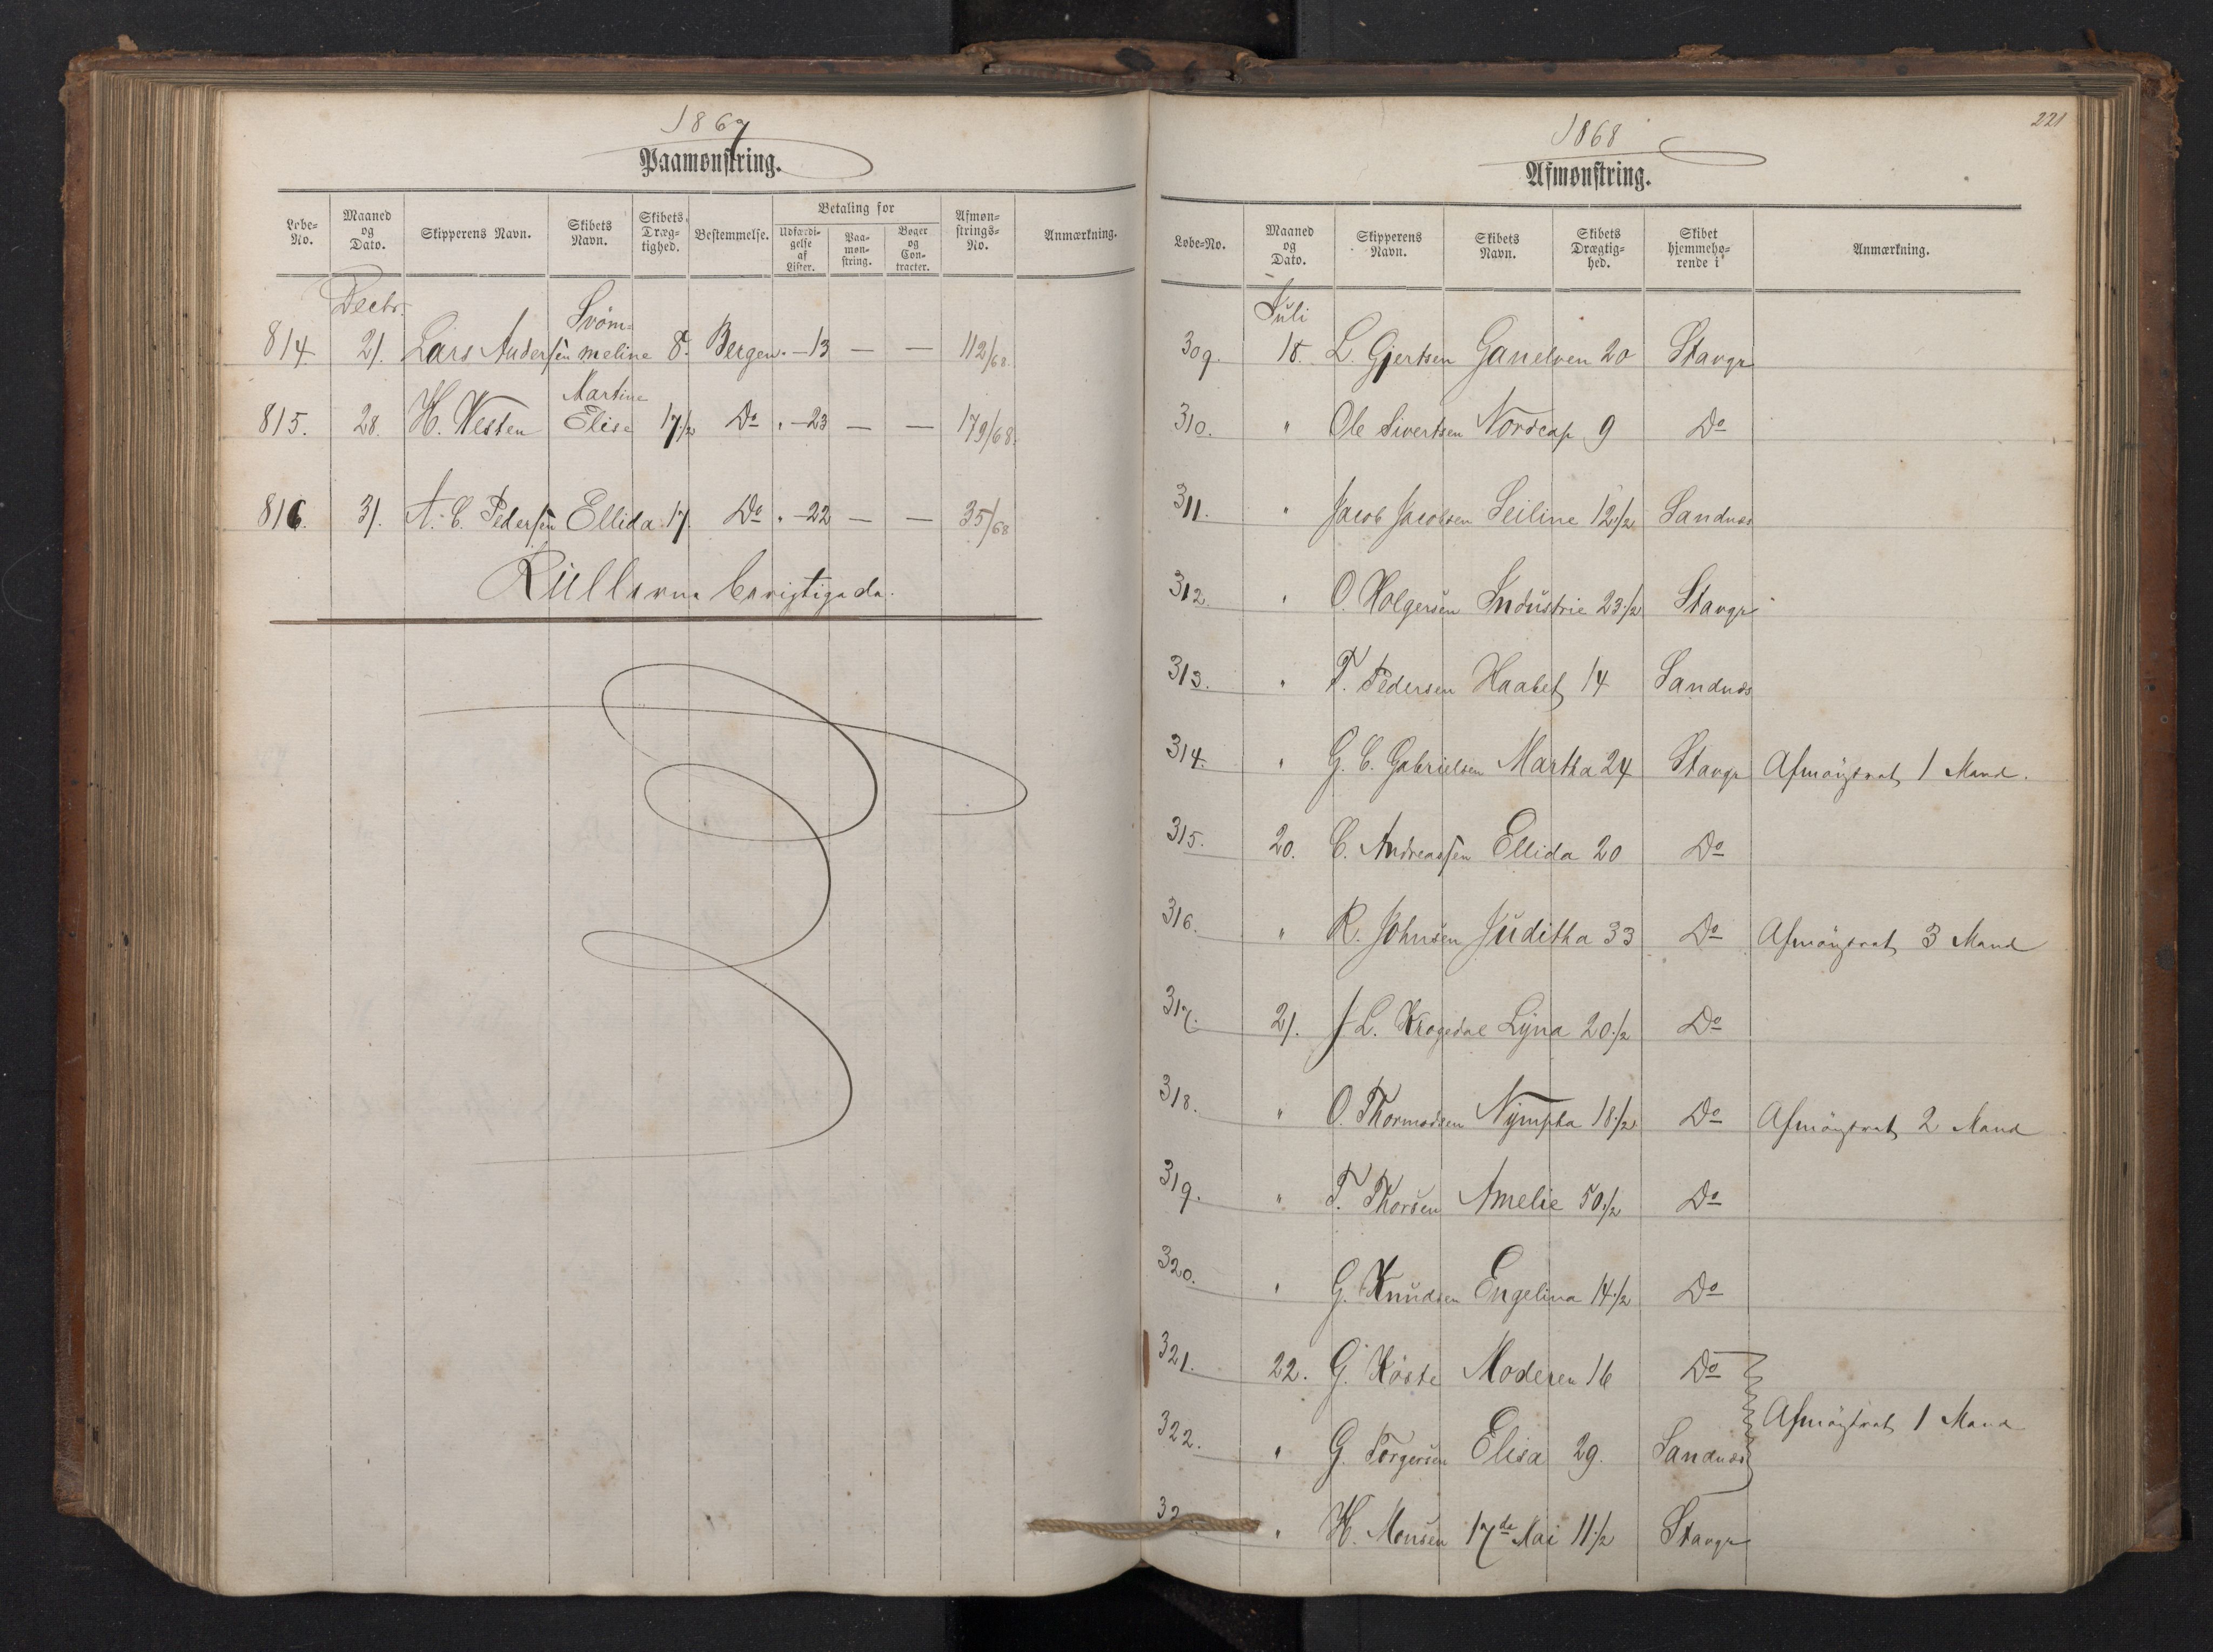 1867
Paamønstring.
Løbe-No. Maaned og Dato. Skipperens Navn. Skibets Navn. Skibets Dræg-tighed. Bestemmelse. Betaling for Udfærdi-gelse af Lister. Paa-møn-string. Bøger og Con-tracter. Afmøn-strings-No. Anmærkning.
Decbr.
814. 21. Lars Andersen Svöm-meline 8. Bergen. " - 13 — — 112/68.
815. 28. H. Westen Martine Elise 17 1/2 Do " - 23 — — 179/68.
816. 31. A. C. Pedersen Ellida 17. Do " - 22 — — 35/68
Rullerne berigtigede.
221
1868
Afmønstring.
Løbe-No. Maaned og Dato. Skipperens Navn. Skibets Navn. Skibets Drægtig-hed. Skibet hjemmehø-rende i Anmærkning.
Juli
309. 18. L. Gjertsen Ganelven 20 Stavgr
310. " Ole Sivertsen Nordcap 9 Do
311. " Jacob Jacobsen Seiline 12 1/2 Sandnæs
312. " O. Holgersen Industrie 23 1/2 Stavgr
313. " T. Pedersen Haabet 14 Sandnæs
314. " G. C. Gabrielsen Martha 24 Stavgr Afmönstret 1 Mand.
315. 20. C. Andreassen Ellida 20 Do
316. " R. Johnsen Juditha 33 Do Afmönstret 3 Mand
317. 21. J. L. Krogedal Lyna 20 1/2 Do
318. " O. Thormodsen Nympha 18 1/2 Do Afmönstret 2 Mand
319. " T. Thorsen Amelie 50 1/2 Do
320. " G. Knudsen Engelina 14 1/2 Do
321. 22. G. Höste Moderen 16 Do
Afmönstret 1 Mand
322. " G. Torgersen Elisa 29. Sandnæs
32 " H. Monsen 17de Mai 11 1/2 Stavgr